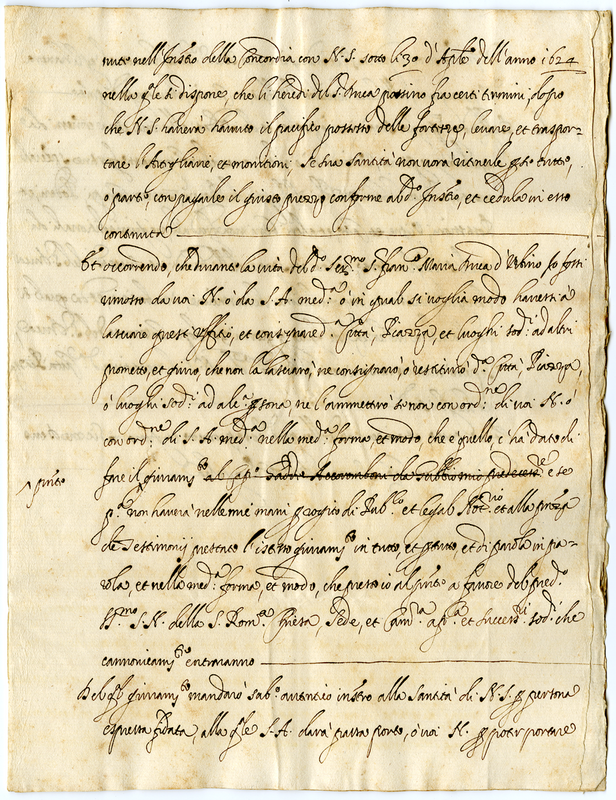 nuto nell'Instro della Concordia con N. S. sotto li 30 d'Aple dell'anno 1624
nella qle si dispone, che li heredi del S. Duca possino fra certi termini, doppo
che N. S. haverà havuto il pacifico possesso delle fortezze, levare, et traspor-
tare l'Artigliarie, et monitioni, se sua Santità non vorà ritenerle tutto,
ò parte, con pagarle il giusto prezzo conforme al do Instro, et cedula in esso
contenuta
Et occorrendo, che durante la vita del do Sermo S. Franco Maria Duca d'Urbino io fossi
rimosso da voi N. ò da S. A. meda ò in qual si voglia modo havessi à
lasciare questo Uffitio, et consignare da Città, Piazza, et luoghi sodi ad altri
prometto, et giuro, che non la lasciarò, ne consignarò, ò restituirò da Città, Piazza,
ò luoghi sodi ad alca psona, ne l'ammetterò se non con ordne di voi N. ò
con ordne di S. A. meda nella meda forma, et modo, che è quello, c'hà dato di
fare il giuramto al Accoramboni da Gubbio mio et se
pa non haverà nelle mie mani p rogito di Pubco et legal Notrio et alla preza
de Testimonij prestato l'istesso giuramto in tutto, et p tutto, et di parola in pa-
rola, et nella meda forma, et modo, che presto io al pnte a favore del predo
S. N. della S. Romna Chiesa, Sede, et Camra apca et Successri sodi che
cannonicamte entraranno
Del qle giuramto mandarò subo autentico instro alla Santità di N. S. p persona
espressa fidata, alla qle S. A. darà passa porto, ò voi N. p poter portare
^ pnte